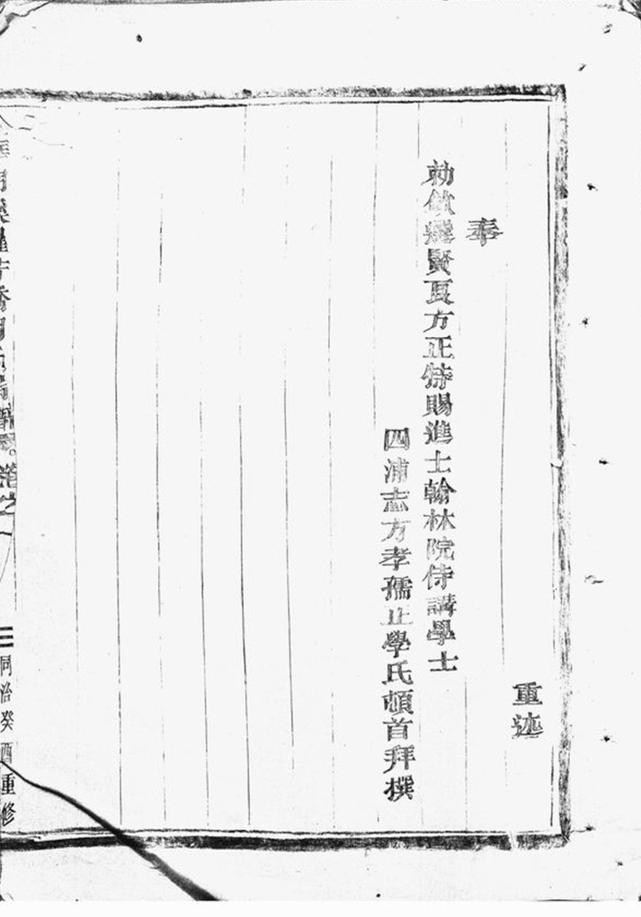 重迹
奉
勅 賢良方正特賜進士翰林院侍講學士
四浦志方孝孺正學氏頓首拜撰
卷之
同治癸酉重修